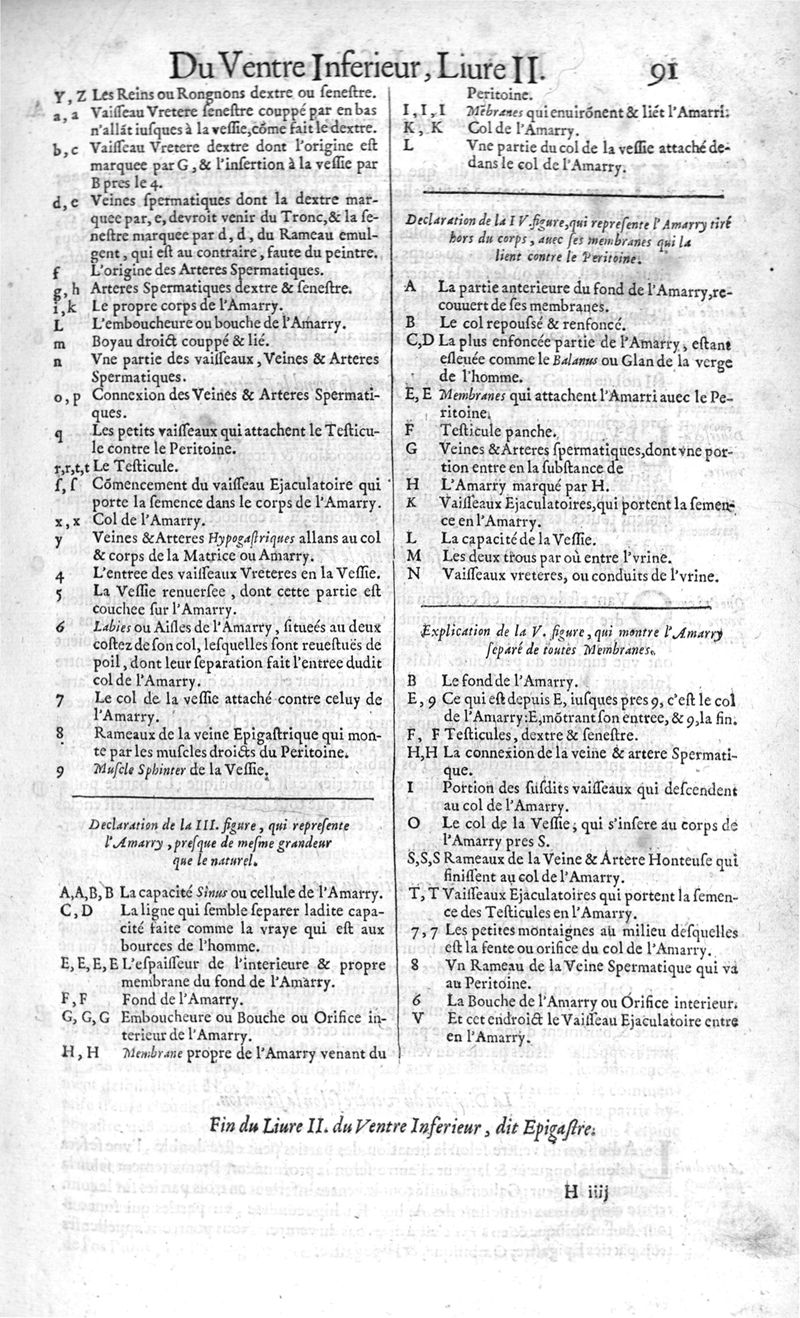 Du Ventre Inferieur, Liure II. 91
Y, Z Les Reins ou Rongnons dextre ou ſeneſtre.
a, a Vaiſſeau Vretere ſeneſtre couppé par en bas
n'allãt iuſques à la veſſie, cõme fait le dextre.
b, c Vaiſſeau Vretere dextre dont l'origine eſt
marquee par G, & l'inſertion à la veſſie par
B pres le 4.
d, e Veines ſpermatiques dont la dextre mar-
quee par, e, devroit venir du Tronc, & la ſe-
neſtre marquee par d, d, du Rameau emul-
gent, qui eſt au contraire, faute du peintre.
f L'origine des Arteres Spermatiques.
g, h Arteres Spermatiques dextre & ſeneſtre.
i, k Le propre corps de l'Amarry.
L L'emboucheure ou bouche de l'Amarry.
m Boyau droict couppé & lié.
n Vne partie des vaiſſeaux, Veines & Arteres
Spermatiques.
o, p Connexion des Veines & Arteres Spermati-
ques.
q Les petits vaiſſeaux qui attachent le Teſticu-
le contre le Peritoine.
r,r,t,t Le Teſticule.
ſ, ſ Cõmencement du vaiſſeau Ejaculatoire qui
porte la ſemence dans le corps de l'Amarry.
x, x Col de l'Amarry.
y Veines & Arteres Hypogaſtriques allans au col
& corps de la Matrice ou Amarry.
4 L'entree des vaiſſeaux Vreteres en la Veſſie.
5 La Veſſie renuerſee, dont cette partie eſt
couchee ſur l'Amarry.
6 Labies ou Aiſles de l'Amarry, ſitueés au deux
coſtez de ſon col, leſquelles ſont reueſtuës de
poil, dont leur ſeparation fait l'entree dudit
col de l'Amarry.
7 Le col de la veſſie attaché contre celuy de
l'Amarry.
8 Rameaux de la veine Epigaſtrique qui mon-
te par les muſcles droicts du Peritoine.
9 Muſcle Sphinter de la Veſſie.
Declaration de la III. figure, qui repreſente
l'Amarry, preſque de meſme grandeur
que le naturel.
A,A,B,B La capacité Sinus ou cellule de l'Amarry.
C, D La ligne qui ſemble ſeparer ladite capa-
cité faite comme la vraye qui eſt aux
bources de l'homme.
E,E,E,E L'eſpaiſſeur de l'interieure & propre
membrane du fond de l'Amarry.
F, F Fond de l'Amarry.
G, G, G Emboucheure ou Bouche ou Orifice in-
terieur de l'Amarry.
H, H Membrane propre de l'Amarry venant du
Peritoine.
I, I, I Mẽbranes qui enuirõnent & liét l'Amarri.
K, K Col de l'Amarry.
L Vne partie du col de la veſſie attaché de-
dans le col de l'Amarry.
Declaration de la IV. figure, qui repreſente l'Amarry tiré
hors du corps, auec ſes membranes qui la
lient contre le Peritoine.
A La partie anterieure du fond de l'Amarry, re-
couuert de ſes membranes.
B Le col repouſsé & renfoncé.
C, D La plus enfoncée partie de l'Amarry, eſtant
eſleuée comme le Balanus ou Glan de la verge
de l'homme.
E, E Membranes qui attachent l'Amarri auec le Pe-
ritoine.
F Teſticule panche.
G Veines & Arteres ſpermatiques, dont vne por-
tion entre en la ſubſtance de
H L'Amarry marqué par H.
K Vaiſſeaux Ejaculatoires, qui portent la ſemen-
ce en l'Amarry.
L La capacité de la Veſſie.
M Les deux trous par où entre l'vrine.
N Vaiſſeaux vreteres, ou conduits de l'vrine.
Explication de la V. figure, qui montre l'Amarry
ſeparé de toutes Membranes.
B Le fond de l'Amarry.
E, 9 Ce qui eſt depuis E, iuſques pres 9, c'eſt le col
de l'Amarry: E, mõtrant ſon entree, & 9, la fin.
F, F Teſticules, dextre & ſeneſtre.
H,H La connexion de la veine & artere Spermati-
que.
I Portion des ſuſdits vaiſſeaux qui deſcendent
au col de l'Amarry.
O Le col de la Veſſie, qui s'inſere au corps de
l'Amarry pres S.
S,S,S Rameaux de la Veine & Artere Honteuſe qui
finiſſent au col de l'Amarry.
T, T Vaiſſeaux Ejaculatoires qui portent la ſemen-
ce des Teſticules en l'Amarry.
7, 7 Les petites montaignes au milieu deſquelles
eſt la fente ou orifice du col de l'Amarry.
8 Vn Rameau de la Veine Spermatique qui va
au Peritoine.
6 La Bouche de l'Amarry ou Orifice interieur.
V Et cet endroict le Vaiſſeau Ejaculatoire entre
en l'Amarry.
Fin du Liure II. du Ventre Inferieur, dit Epigaſtre.
H iiij